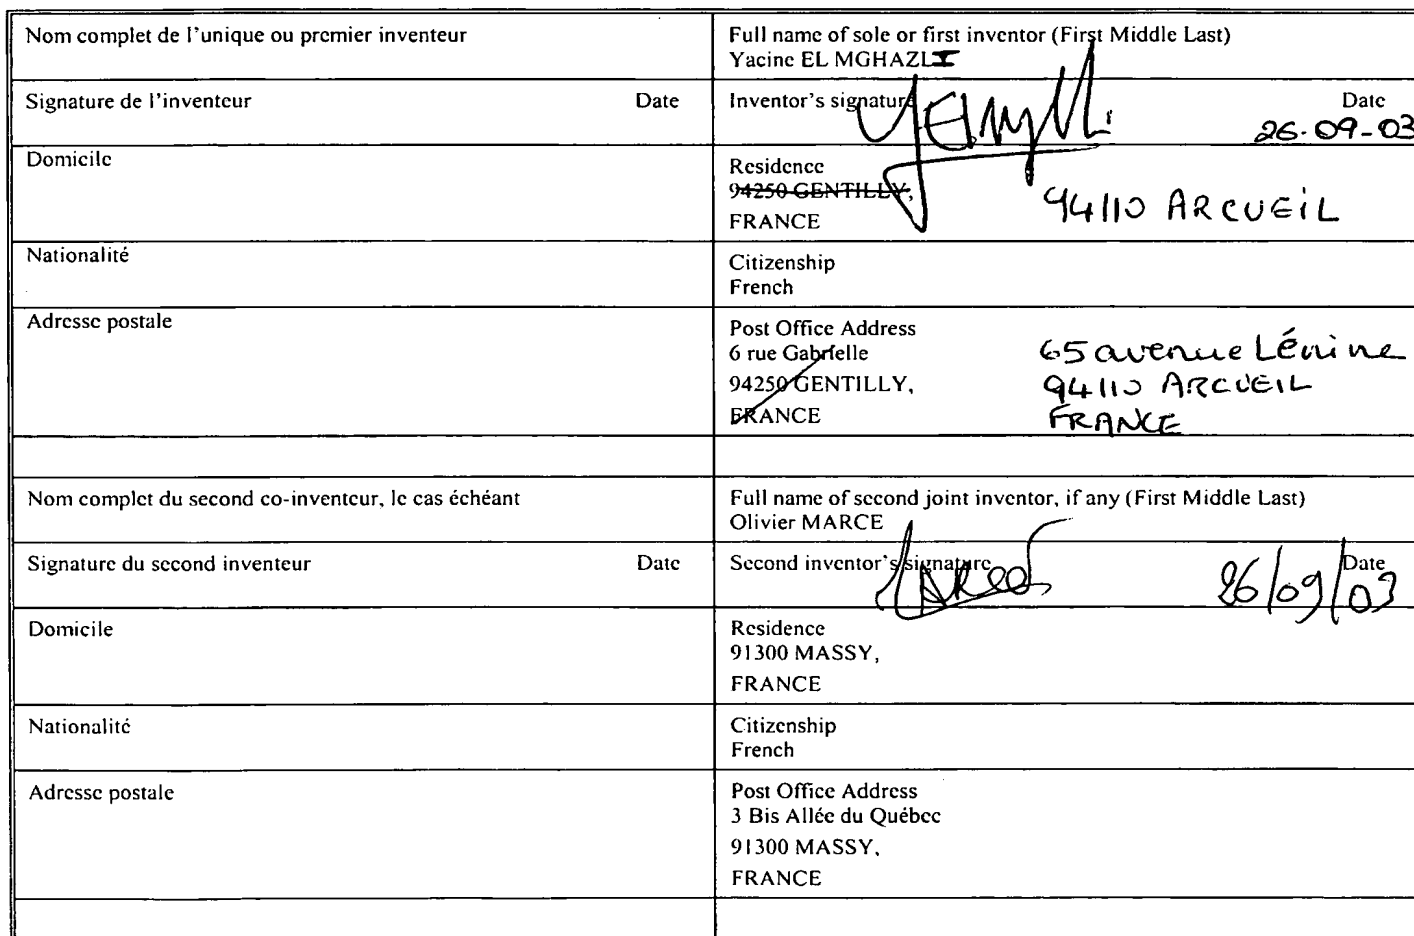 Nom complet de l'unique ou premier inventeur
Full name of sole or first inventor (First Middle Last)
Yacine EL MGHAZLI
Signature de l'inventeur Date
Inventor's signature Date
26-09-03
Domicile
Residence
94250 GENTILLY,
FRANCE
94110 ARCUEIL
Nationalité
Citizenship
French
Adresse postale
Post Office Address
6 rue Gabrielle
94250 GENTILLY,
FRANCE
65 avenue Lénine
94110 ARCUEIL
FRANCE
Nom complet du second co-inventeur, le cas échéant
Full name of second joint inventor, if any (First Middle Last)
Olivier MARCE
Signature du second inventeur Date
Second inventor's signature Date
26/09/03
Domicile
Residence
91300 MASSY,
FRANCE
Nationalité
Citizenship
French
Adresse postale
Post Office Address
3 Bis Allée du Québec
91300 MASSY,
FRANCE